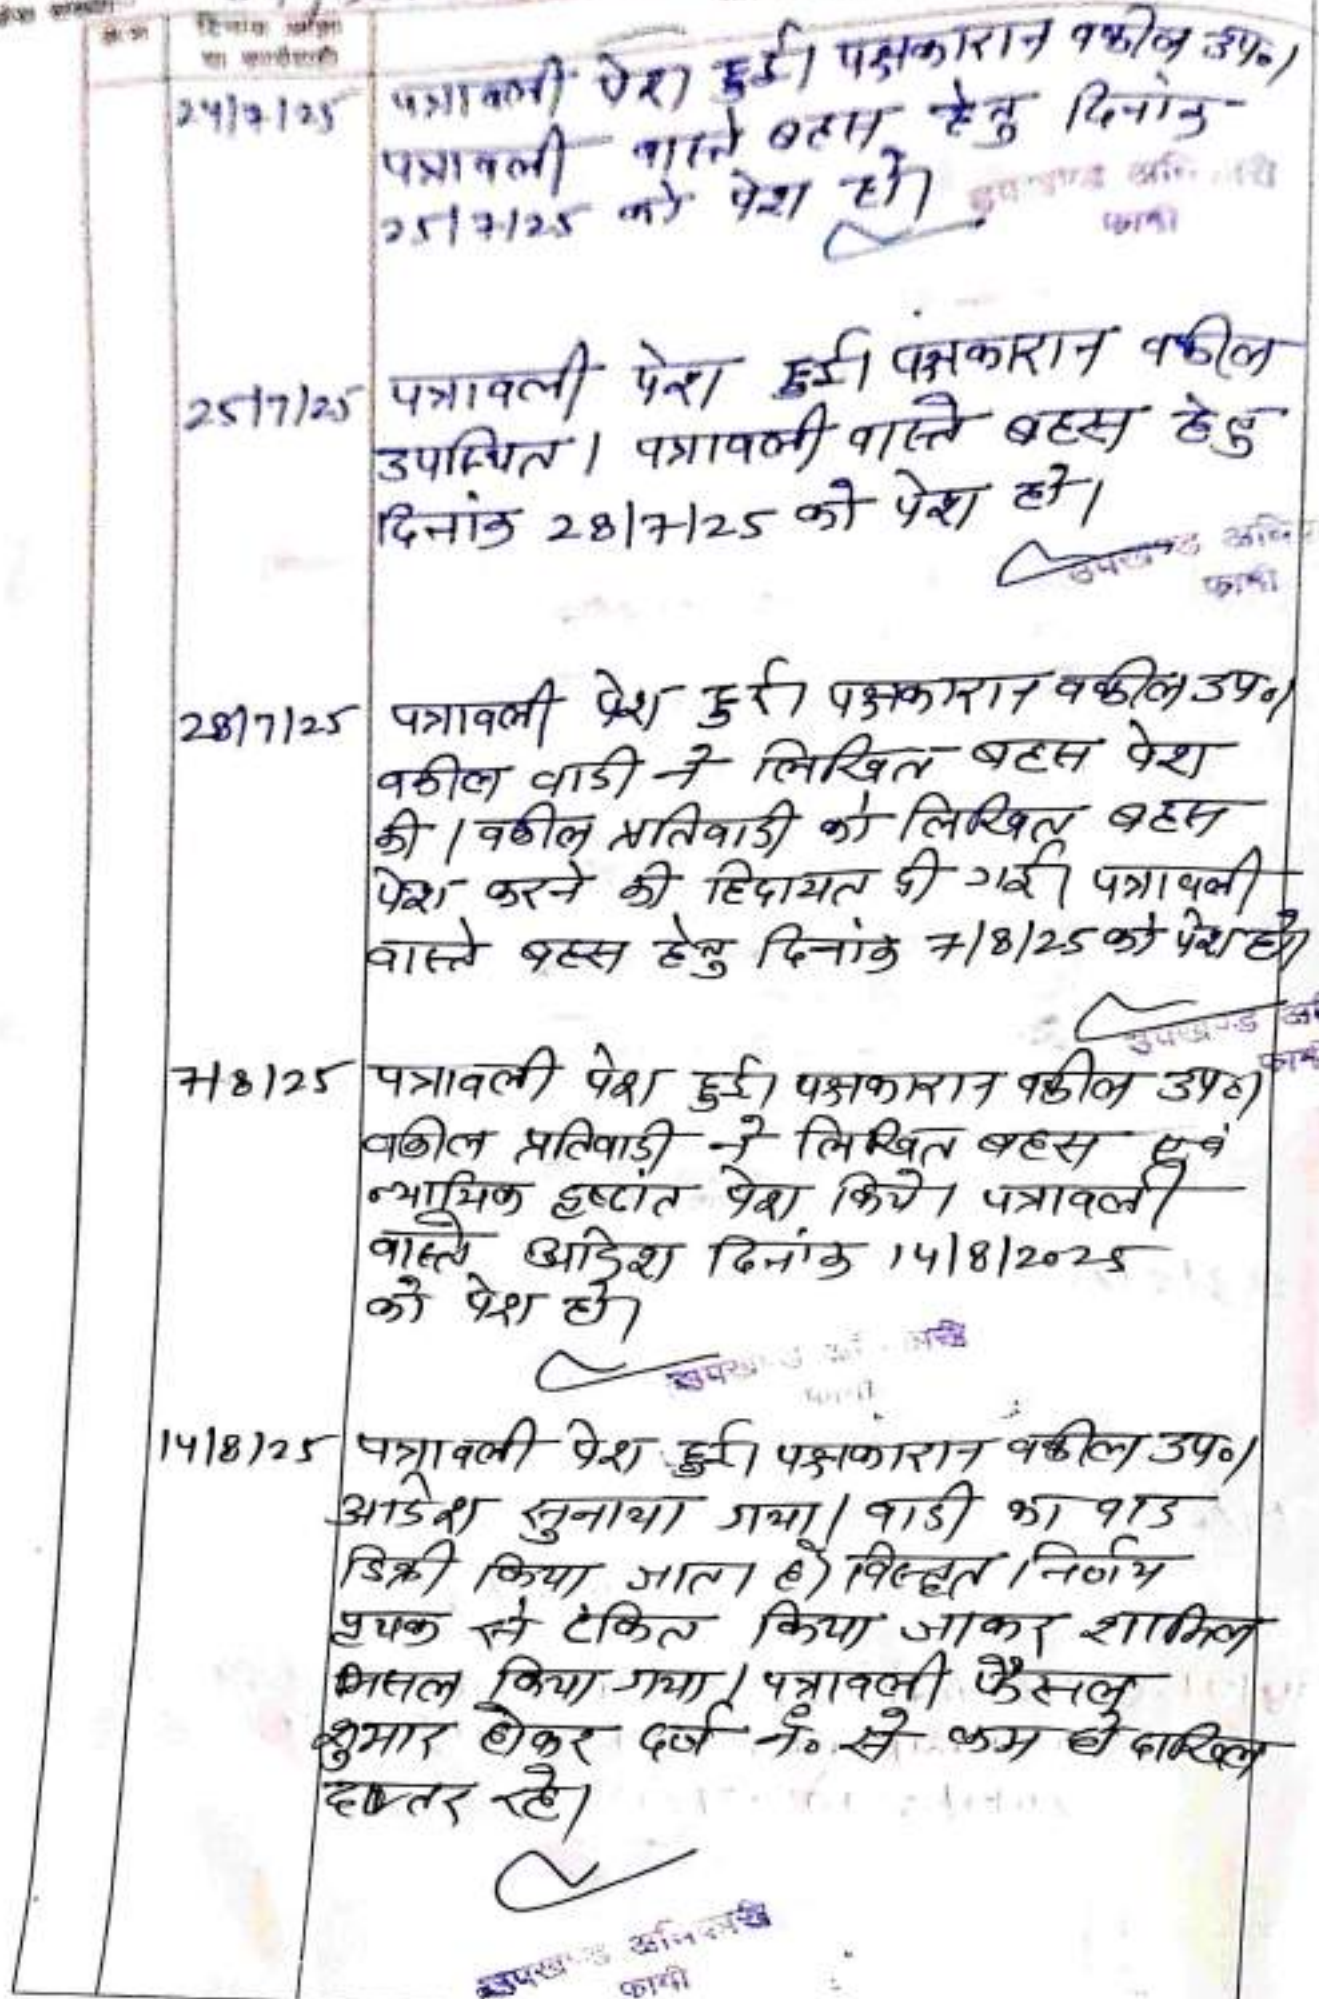 क्र.सं.
दिनांक आज्ञा
या कार्यवाही
24/7/25
पत्रावली पेश हुई। पक्षकारान वकील उप०।
पत्रावली वास्ते बहस हेतु दिनांक
25/7/25 को पेश हो।
उपखण्ड
फागी
25/7/25
पत्रावली पेश हुई। पक्षकारान वकील
उपस्थित। पत्रावली वास्ते बहस हेतु
दिनांक 28/7/25 को पेश हो।
उपखण्ड
फागी
28/7/25
पत्रावली पेश हुई। पक्षकारान वकील उप०।
वकील वादी ने लिखित बहस पेश
की। वकील प्रतिवादी को लिखित बहस
पेश करने की हिदायत दी गई। पत्रावली
वास्ते बहस हेतु दिनांक 7/8/25 को पेश हो।
उपखण्ड
7/8/25
पत्रावली पेश हुई। पक्षकारान वकील उप०।
वकील प्रतिवादी ने लिखित बहस एवं
न्यायिक दृष्टांत पेश किये। पत्रावली
वास्ते आदेश दिनांक 14/8/2025
को पेश हो।
उपखण्ड
14/8/25
पत्रावली पेश हुई। पक्षकारान वकील उप०।
आदेश सुनाया गया। वादी का वाद
डिक्री किया जाता है। विस्तृत निर्णय
पृथक से टंकित किया जाकर शामिल
मिसल किया गया। पत्रावली फैसल
शुमार होकर दर्ज नं० से कम हो दाखिल
दफ्तर रहे।
उपखण्ड अधिकारी
फागी